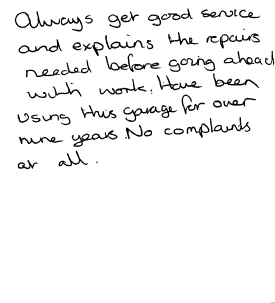 Always get good service
and explains the repairs
needed before going ahead
with work. Have been
using this garage for over
nine years. No complaints
at all.